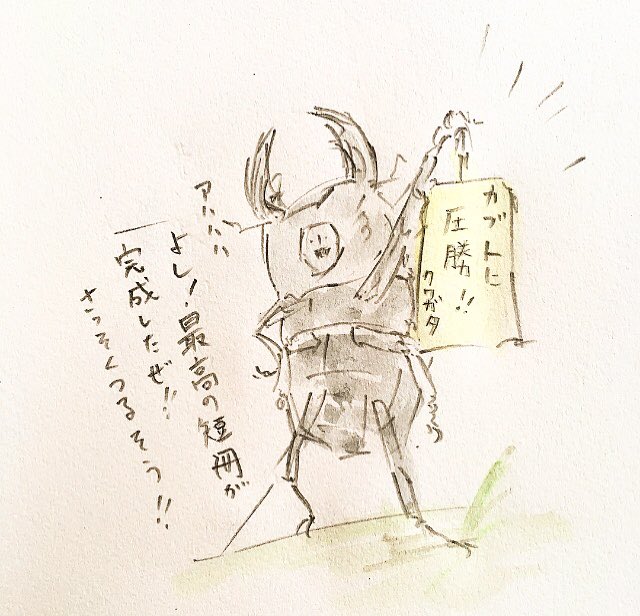 カブトに
圧勝!!
クワガタ
アハハハ
よし!最高の短冊が
完成したぜ!!
さっそくつるそう!!